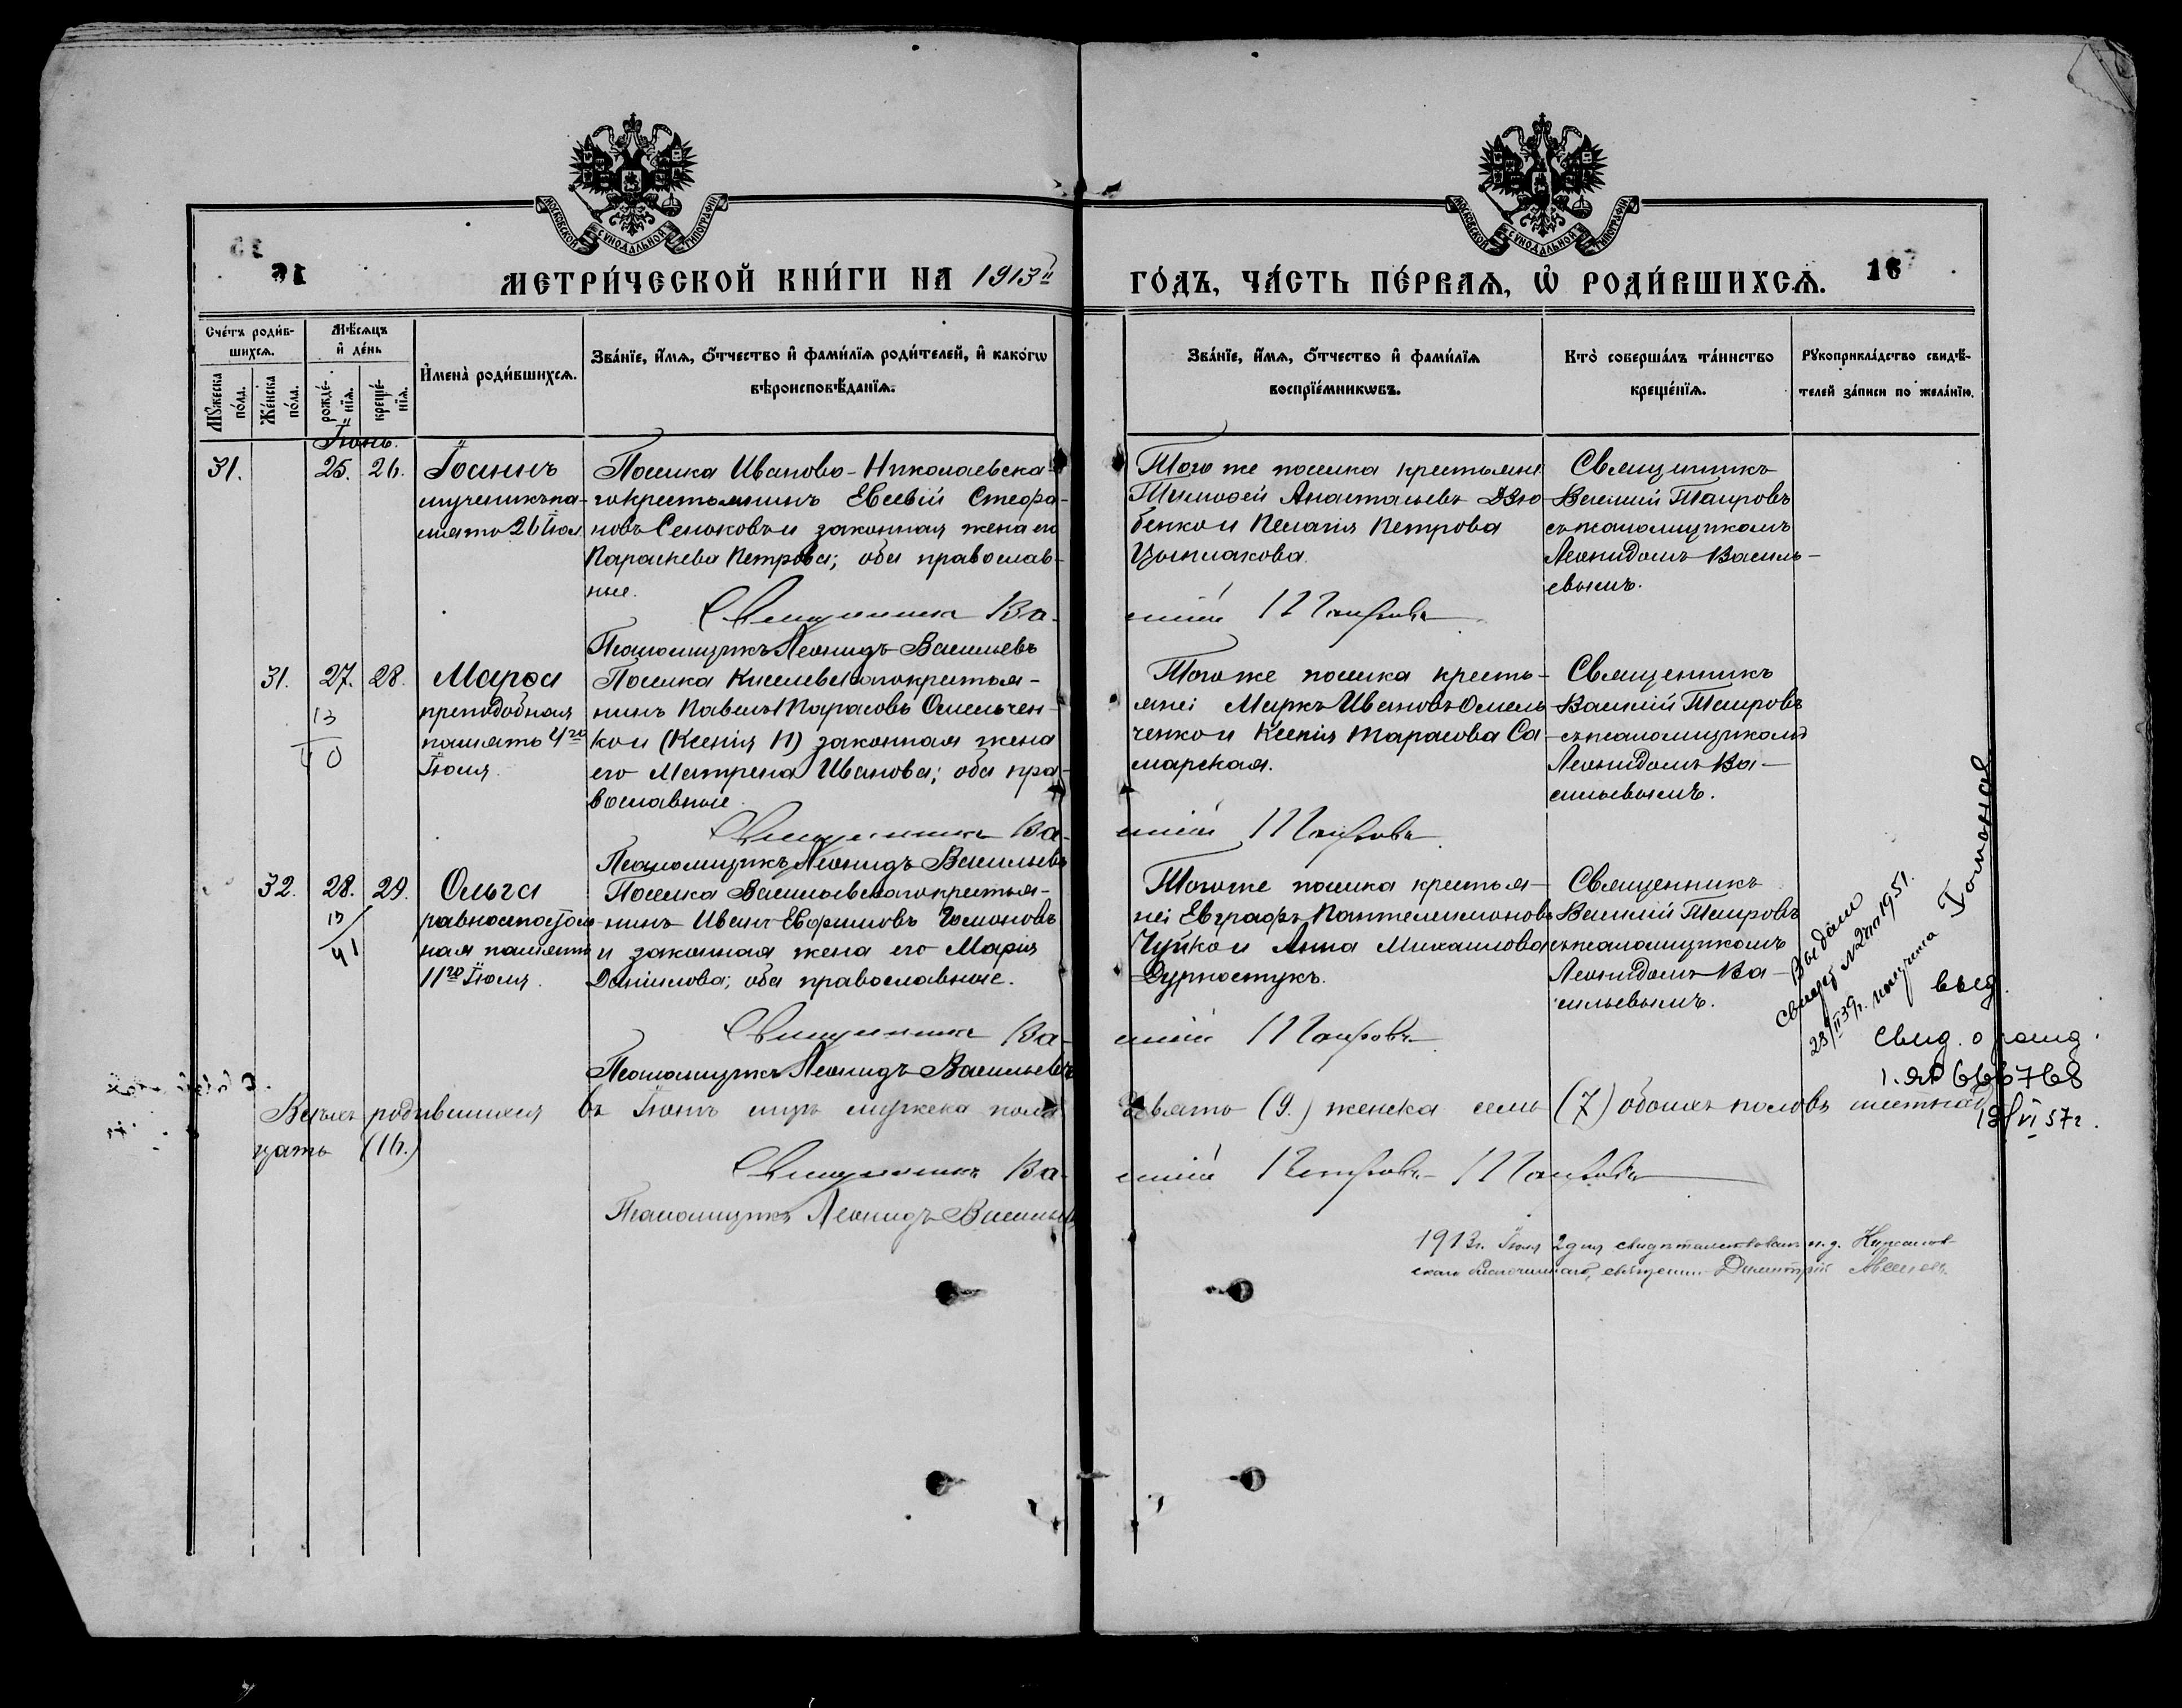 МОСКОВСКОЙ СѴНОДАЛЬНОЙ ТИПОГРАФІИ
МОСКОВСКОЙ СѴНОДАЛЬНОЙ ТИПОГРАФІИ
МЕТРИ́ЧЕСКОЙ КНИ́ГИ НА 1913й ГО́ДЪ, ЧА́СТЬ ПЕ́РВАѦ, Ѡ҆ РОДИ́ВШИХСѦ.
16
Сче́тъ роди́в-
шихсѧ.
Мꙋжеска
по́ла.
Же́нска
по́ла.
Мѣ́сѧцъ
и҆ де́нь
рожде́-
нїѧ.
креще́-
нїѧ.
И҆мена̀ роди́вшихсѧ.
Зва́нїе, и҆́мѧ, ѻ҆́тчество и҆ фами́лїѧ роди́телей, и҆ како́гѡ
вѣроисповѣ́данїѧ.
Зва́нїе, и҆́мѧ, ѻ҆́тчество и҆ фами́лїѧ
воспрїе́мникѡвъ.
Кто̀ соверша́лъ та́инство
креще́нїѧ.
Рꙋкоприкла́дство свидѣ́-
телей за́писи по жела́нїю.
Іюнь.
31.
25.
26.
Іоаннъ
мученикъ па-
мять 26 Іюн
Поселка Иваново-Николаевска
го крестьянинъ Евсевій Стефа-
новъ Сеньковъ и законная жена его
Параскева Петрова; оба православ-
ные.
Того же поселка крестьяне
Тимофей Анастасьевъ Дзю-
бенко и Пелагія Петрова
Цыплакова.
Священникъ
Василій Таировъ
съ псаломщикомъ
Леонидомъ Василь-
евымъ.
Священникъ Василій Таировъ
Псаломщикъ Леонидъ Васильевъ
31.
27.
28.
13
Марѳа
преподобная
память 4го
Іюля.
Поселка Киселевскаго крестья-
нинъ Павелъ Тарасовъ Омельчен-
ко и (Ксенія П) законная жена
его Матрена Иванова; оба пра-
вославные.
Того же поселка кресть-
яне: Маркъ Ивановъ Омель-
ченко и Ксенія Тарасова Са-
марская.
Священникъ
Василій Таировъ
съ псаломщикомъ
Леонидомъ Ва-
сильевымъ.
Священникъ Василій Таировъ
Псаломщикъ Леонидъ Васильевъ
32.
28.
29.
41
Ольга
равноапостоль-
ная память
11го Іюля.
Поселка Васильевскаго крестья-
нинъ Иванъ Евфимовъ Гомоновъ
и законная жена его Марія
Данилова; оба православные.
Того же поселка крестья-
не: Евграфъ Пантелеимоновъ
Чуйко и Анна Михаилова
Дурностукъ.
Священникъ
Василій Таировъ
съ псаломщикомъ
Леонидомъ Ва-
сильевымъ.
Выдано
1951.
23/II 39г. получила Гомонов
выд.
свид. о рожд.
666768
19/VI 57г.
Священникъ Василій Таировъ
Псаломщикъ Леонидъ Васильевъ
Всѣхъ родившихся въ Іюнѣ мцѣ мужеска пола девять (9.) женска семь (7) обоихъ половъ шестнад-
цать (16.)
Священникъ Василій Петровъ Таировъ
Псаломщикъ Леонидъ Васильевъ
1913г. Іюля 2 дня свидѣтельствовалъ и.д.
благочиннаго, священн. Димитрій